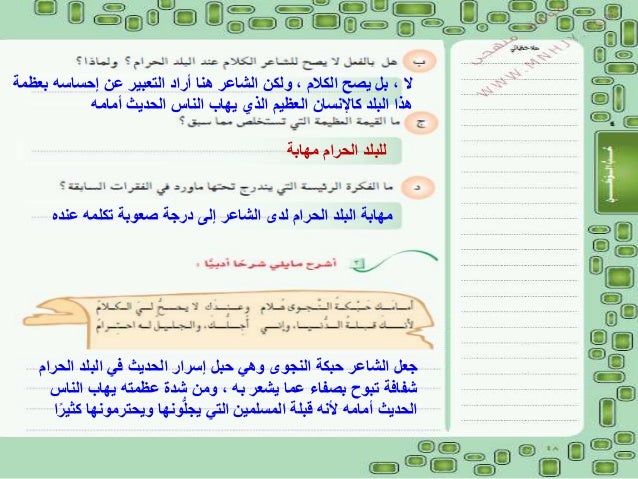 ملاحظاتي
ب هل بالفعل لا يصح للشاعر الكلام عند البلد الحرام ؟ ولماذا؟
لا ، بل يصح الكلام ، ولكن الشاعر هنا أراد التعبير عن إحساسه بعظمة
هذا البلد كالإنسان العظيم الذي يهاب الناس الحديث أمامه
ج ما القيمة العظيمة التي تستخلص مما سبق؟
للبلد الحرام مهابة
د ما الفكرة الرئيسة التي يندرج تحتها ماورد في الفقرات السابقة؟
مهابة البلد الحرام لدى الشاعر إلى درجة صعوبة تكلمه عنده
٢ أشرح مايلي شرحًا أدبيًّا :
أمامـك حبكـة النجـوى وعنـدك لا يصـح لـي الكـلام
لأنـك قبلـة الدنيـا، وإنـي أجلـك، والجليـل لـه احتـرام
جعل الشاعر حبكة النجوى وهي حبل إسرار الحديث في البلد الحرام
شفافة تبوح بصفاء عما يشعر به ، ومن شدة عظمته يهاب الناس
الحديث أمامه لأنه قبلة المسلمين التي يجلُّونها ويحترمونها كثيرًا
٤٨
WWW.MNHJY